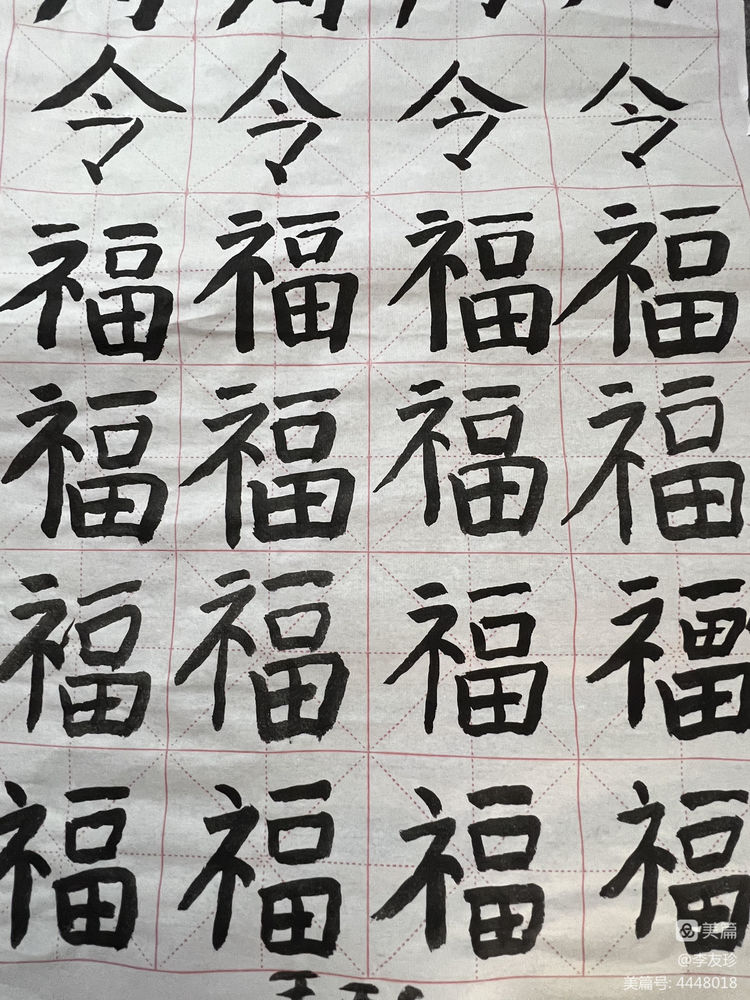 令令令令
福福福福
福福福福
福福福福
福福福福
美篇
@李友珍
美篇号: 4448018